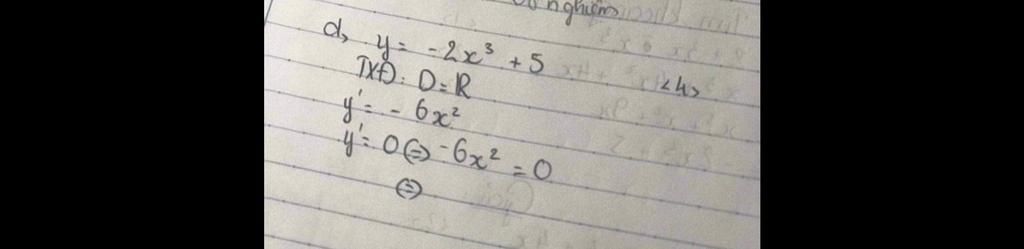 nghiệm
d, y = -2x³ + 5
TXĐ: D = R
<4>
y' = - 6x²
y' = 0 ⇔ -6x² = 0
⇔